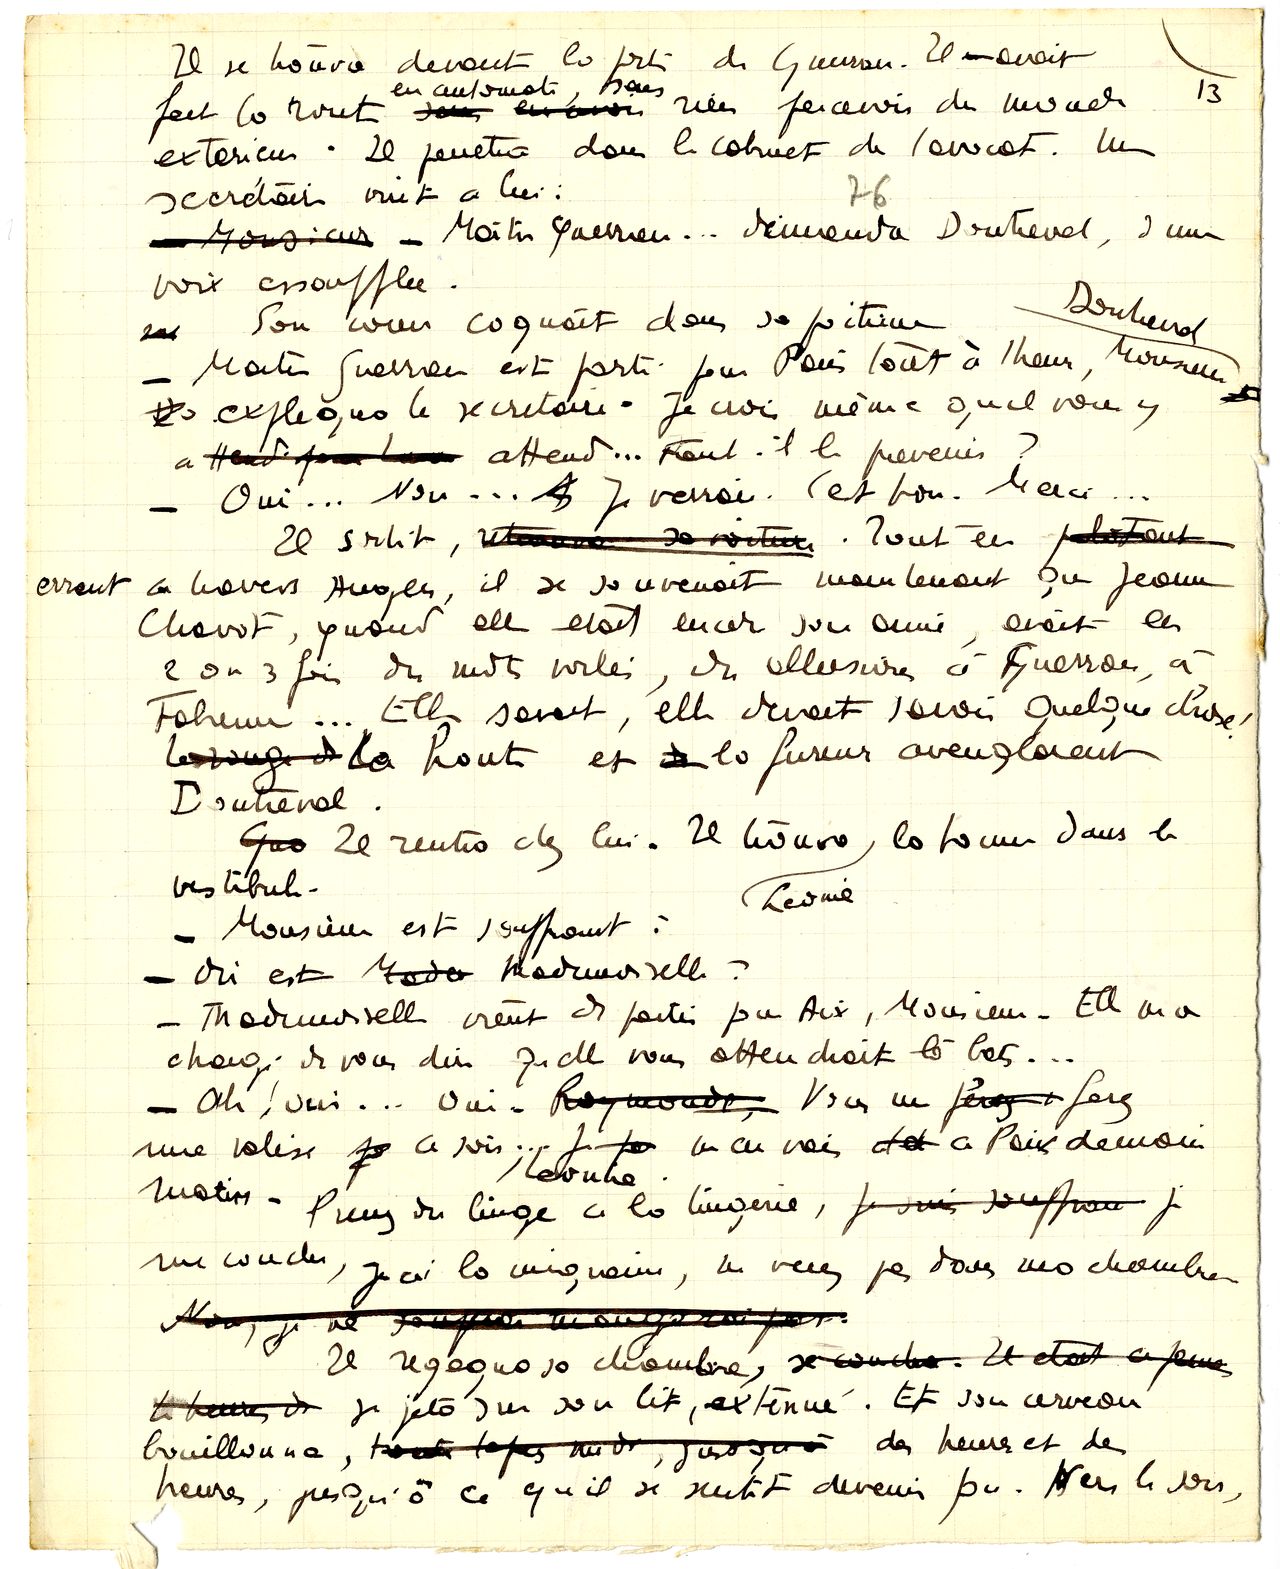 13
Il se trouva devant la porte de Guerran. Il avait
fait la route sans en avoir en automate, sans rien percevoir du monde
exterieur. Il penetra dans le cabinet de l'avocat. Un
secrétaire vint a lui :
76
— Monsieur — Maître Guerran... demanda Doutreval, d'une
voix essoufflée.
Son coeur cognait dans sa poitrine
— Maitre Guerran est parti pour Paris tout à l'heure, Monsieur Doutreval
expliqua le secretaire. Je crois même qu'il vous y
attend... Faut-il le prevenir ?
— Oui... Non... Je verrai. C'est bon. Merci...
Il sortit, retrouva sa voiture. Tout en
errant a travers Angers, il se souvenait maintenant que Jeanne
Chavot, quand elle etait encor son amie, avait eu
2 ou 3 fois des mots voilés, des allusions à Guerran, à
Fabienne... Elle savait, elle devait savoir quelque chose !
La honte et la fureur aveuglaient
Doutreval.
Il rentra chez lui. Il trouva Leonie, la bonne dans le
vestibule.
— Monsieur est souffrant ?
— Où est Mada Mademoiselle ?
— Mademoiselle vient de partir pour Aix, Monsieur. Elle m'a
chargé de vous dire qu'elle vous attendrait là bas...
— Ah ! oui... oui. Raymonde, Vous me ferez
une valise ce soir... Je m'en vais à Paris demain
matin. Prenez du linge a la lingerie, je suis souffran je
me couche, j'ai la migraine, ne venez pas dans ma chambre
Non, je ne mangerai pas.
Il regagna sa chambre, se coucha. Il etait a peine
se jeta sur son lit, exténué. Et son cerveau
bouillonna, des heures et des
heures, jusqu'à ce qu'il se sentit devenir fou. Vers le soir,